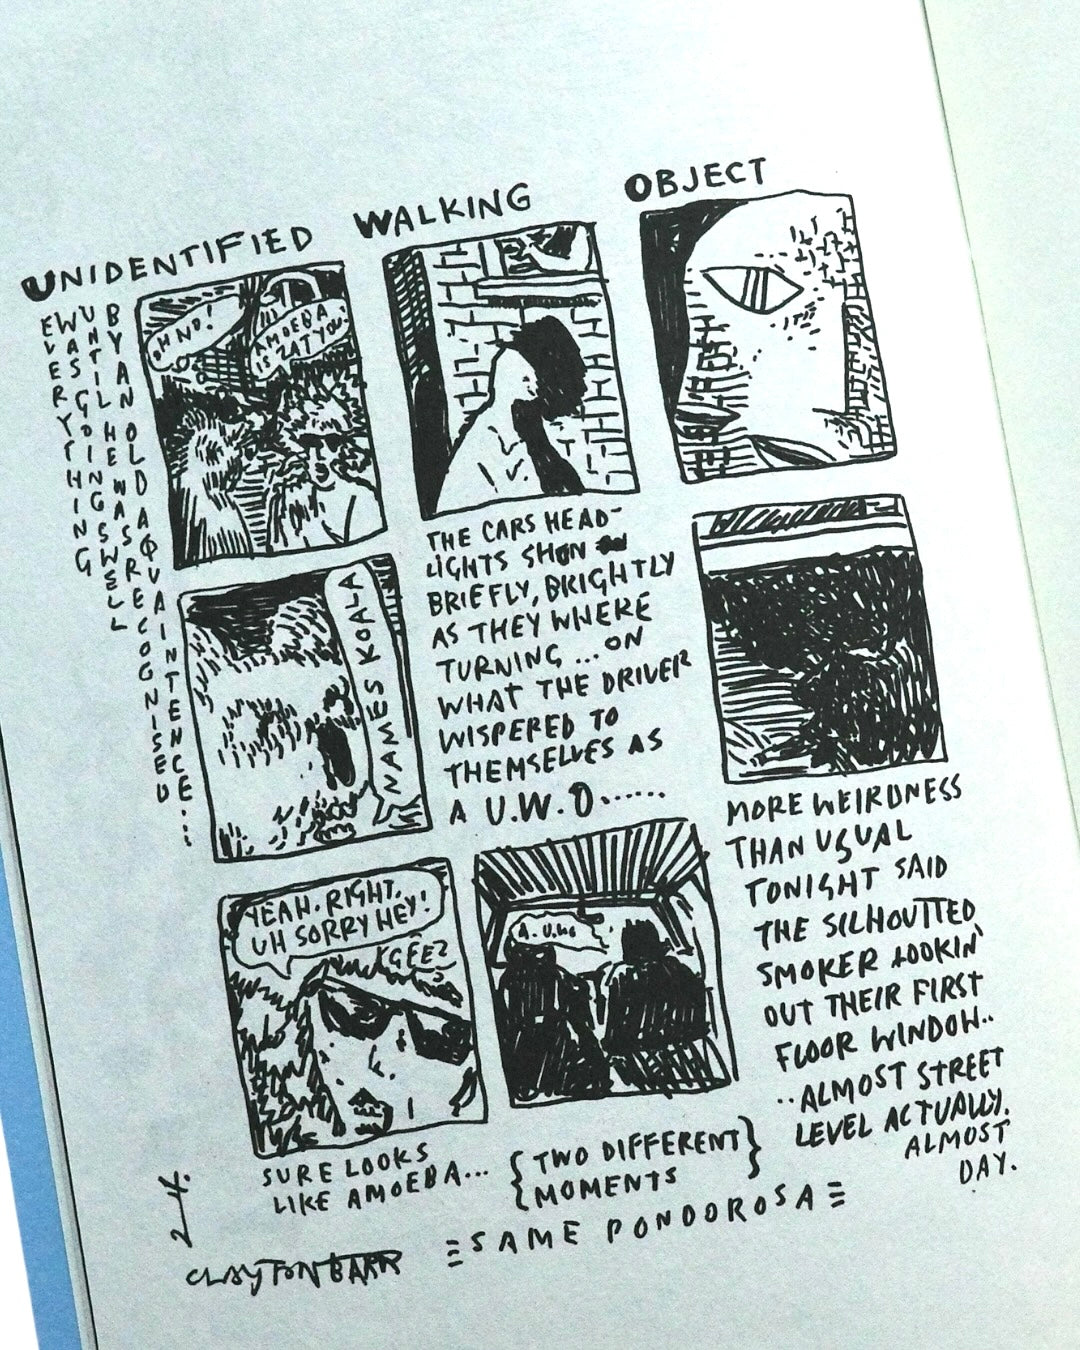 UNIDENTIFIED WALKING OBJECT
EVERYTHING
WAS GOING SWELL
UNTIL HE WAS RECOGNISED
BY AN OLD AQUAINTENCE...
OH NO!
AMOEBA
IS ZAT YOU?
NAMES KOALA
YEAH. RIGHT.
UH SORRY HEY!
GEEZ
SURE LOOKS
LIKE AMOEBA...
THE CARS HEAD-
LIGHTS SHON
BRIEFLY, BRIGHTLY
AS THEY WHERE
TURNING ... ON
WHAT THE DRIVER
WISPERED TO
THEMSELVES AS
A U.W.O......
A. U.W.O
{TWO DIFFERENT
MOMENTS}
MORE WEIRDNESS
THAN USUAL
TONIGHT SAID
THE SILHOUTTED
SMOKER LOOKIN'
OUT THEIR FIRST
FLOOR WINDOW..
..ALMOST STREET
LEVEL ACTUALLY.
ALMOST
DAY.
SAME PONDOROSA
24.
CLAYTON BARR